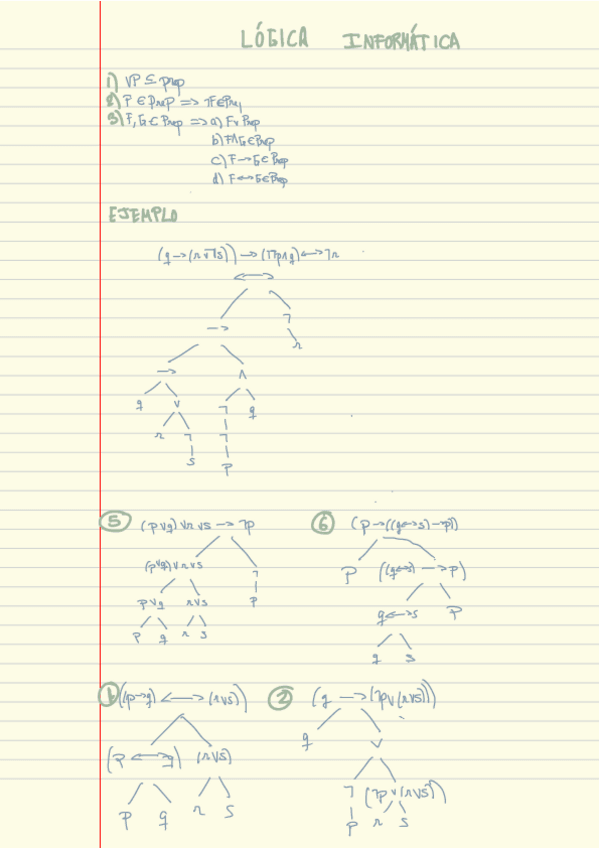 LÓGICA INFORMÁTICA
1) VP ⊆ prop
2) P ∈ Prop => ¬F ∈ Prop
3) F, G ⊂ Prop => a) F∨ Prop
b) F∧G ∈ Prop
c) F → G ∈ Prop
d) F ↔ G ∈ Prop
EJEMPLO
(q → (r ∨ ¬s)) → (¬¬p ∧ q) ↔ ¬r
↔
→ ¬
r
→ ∧
q ∨ ¬ q
r ¬ ¬
s p
5 (p ∨ q) ∨ r ∨ s → ¬p
(p ∨ q) ∨ r ∨ s ¬
p ∨ q r ∨ s p
p q r s
6 (p → ((q ↔ s) → p))
p ((q ↔ s) → p)
q ↔ s p
q s
1 ((p → q) ↔ (r ∨ s))
(p ↔ q) (r ∨ s)
p q r s
2 (q → (¬p ∨ (r ∨ s)))
q ∨
¬ (¬p ∨ (r ∨ s))
p r s